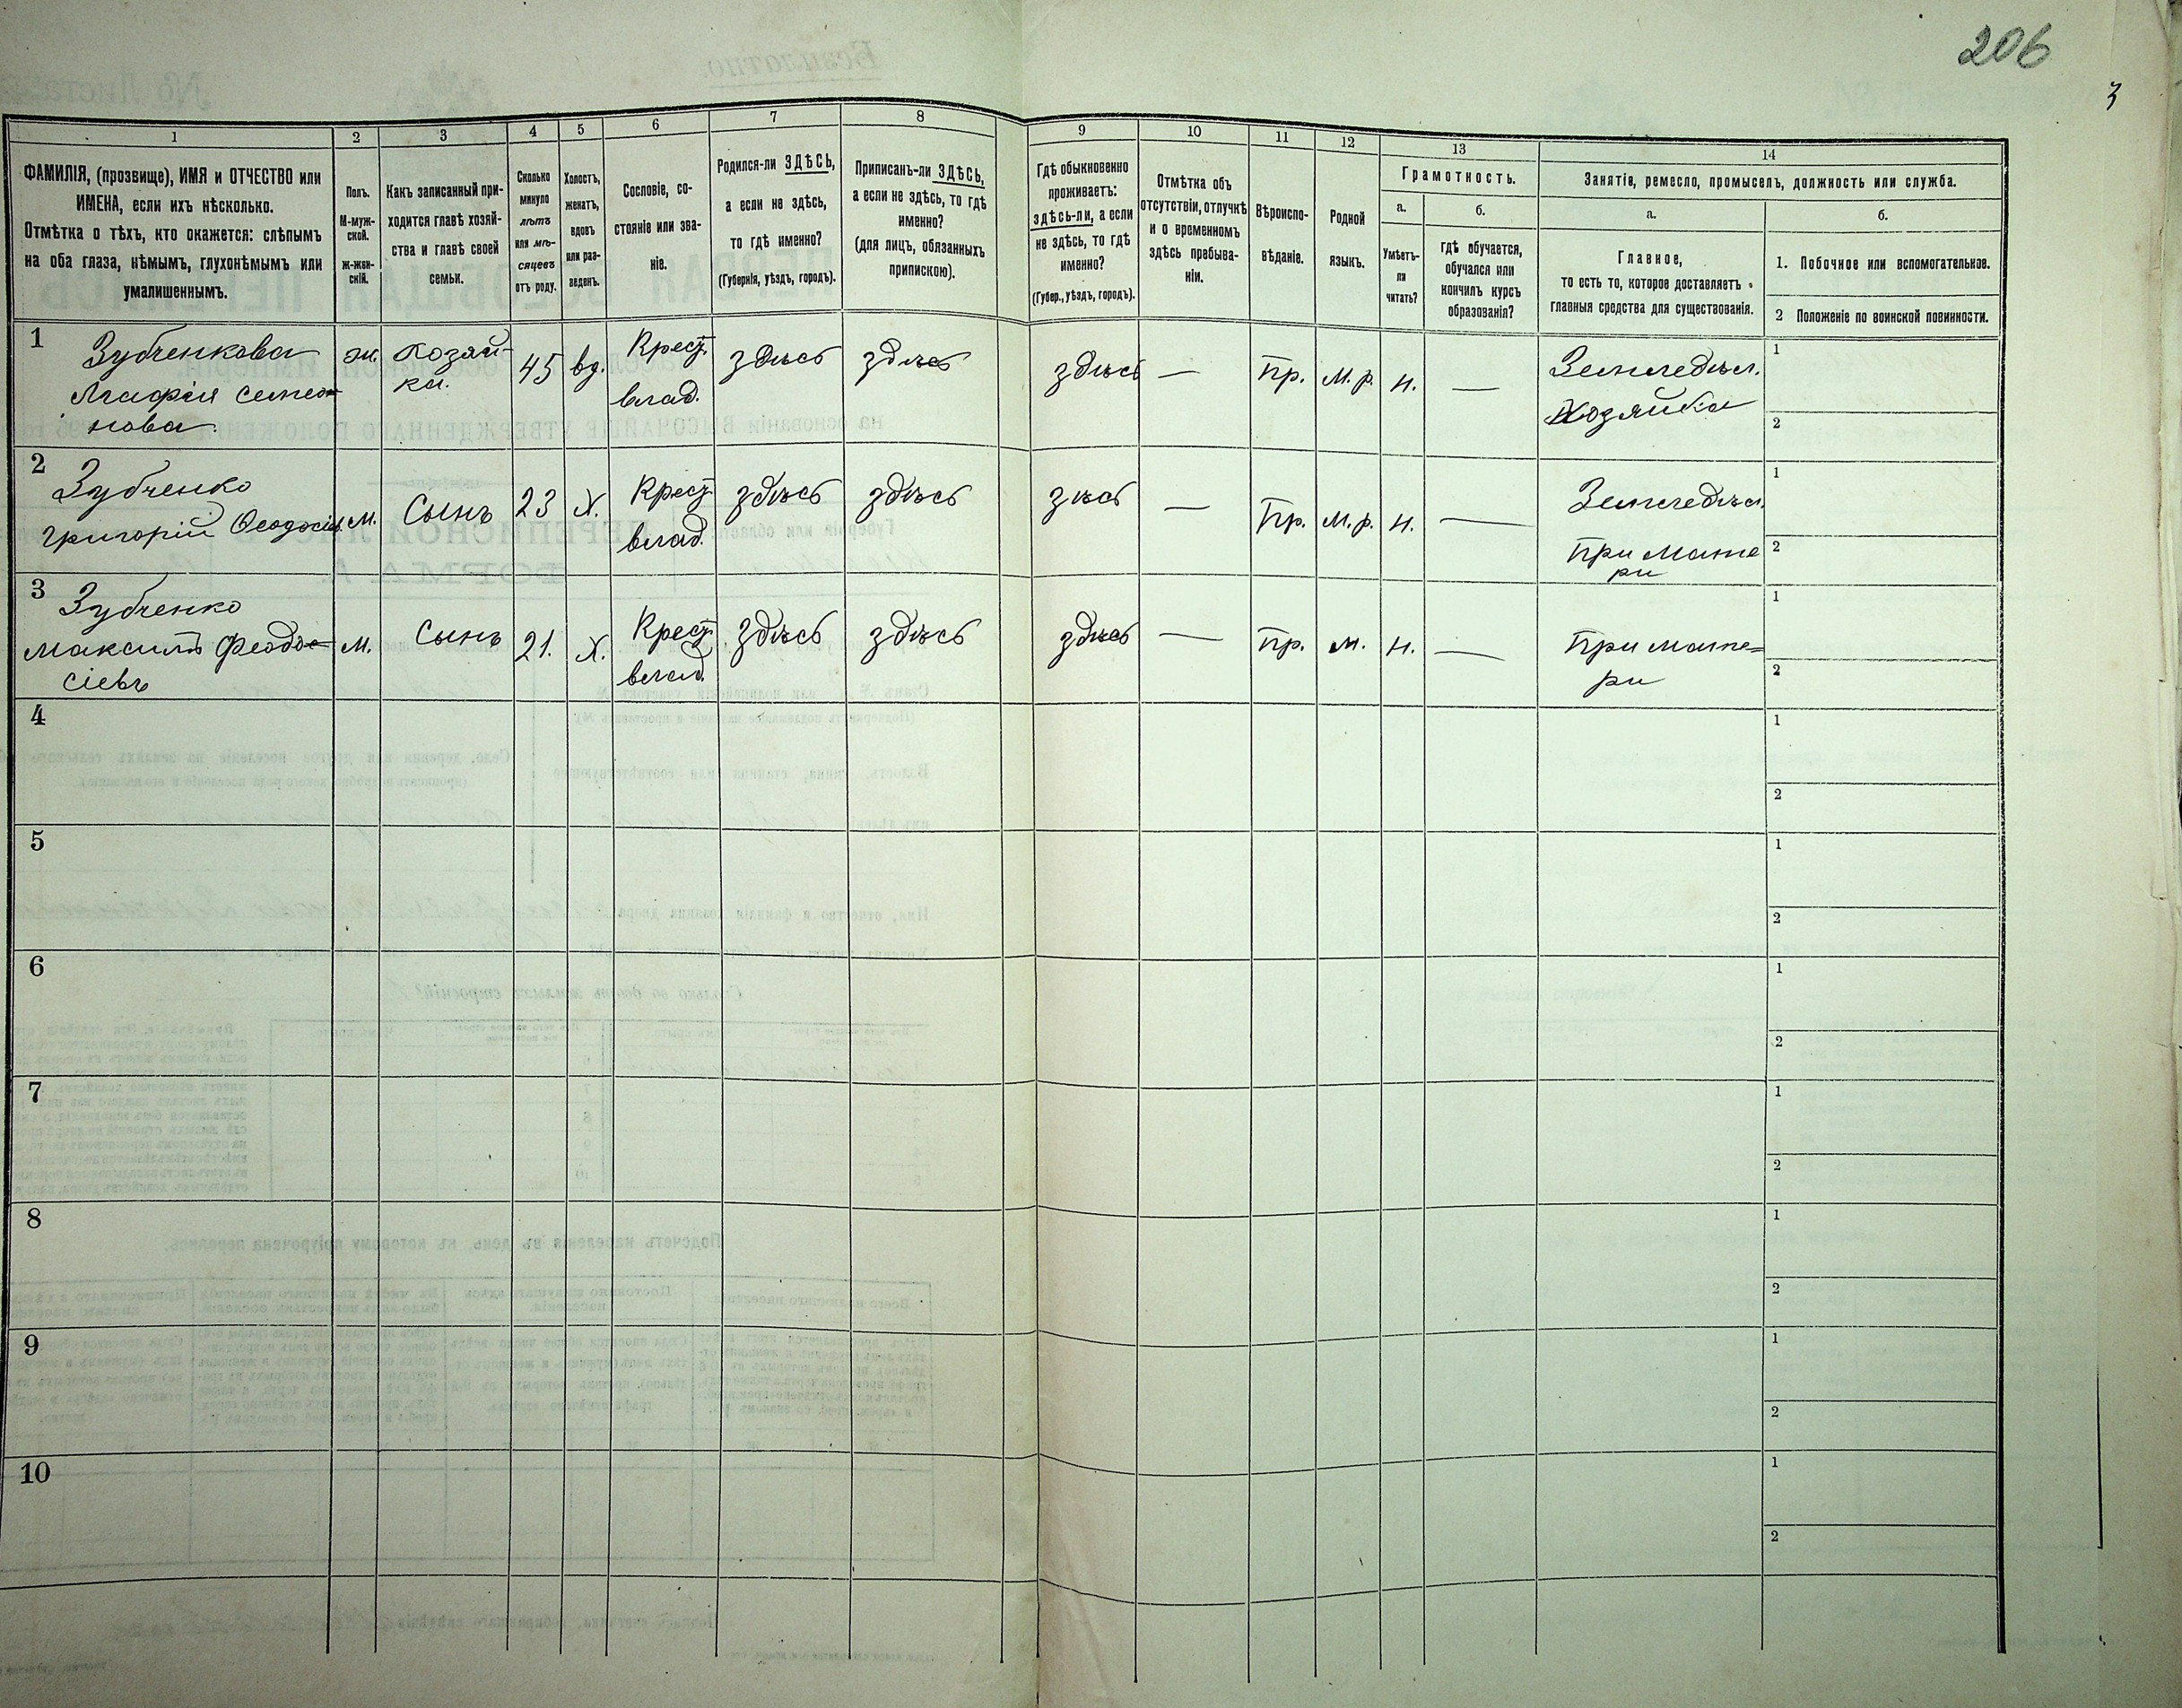 206
3
1
2
3
4
5
6
7
8
9
10
11
12
13
14
ФАМИЛІЯ, (прозвище), ИМЯ и ОТЧЕСТВО или
ИМЕНА, если ихъ нѣсколько.
Отмѣтка о тѣхъ, кто окажется: слѣпымъ
на оба глаза, нѣмымъ, глухонѣмымъ или
умалишеннымъ.
Полъ.
М-муж-
ской.
ж-жен-
скій.
Какъ записанный при-
ходится главѣ хозяй-
ства и главѣ своей
семьи.
Сколько
минуло
лѣтъ
или мѣ-
сяцевъ
отъ роду.
Холостъ,
женатъ,
вдовъ
или раз-
веденъ.
Сословіе, со-
стояніе или зва-
ніе.
Родился-ли ЗДѢСЬ,
а если не здѣсь,
то гдѣ именно?
(Губернія, уѣздъ, городъ).
Приписанъ-ли ЗДѢСЬ,
а если не здѣсь, то гдѣ
именно?
(для лицъ, обязанныхъ
припискою).
Гдѣ обыкновенно
проживаетъ:
здѣсь-ли, а если
не здѣсь, то гдѣ
именно?
(Губер., уѣздъ, городъ).
Отмѣтка объ
отсутствіи, отлучкѣ
и о временномъ
здѣсь пребыва-
ніи.
Вѣроиспо-
вѣданіе.
Родной
языкъ.
Грамотность.
а.
Умѣетъ-
ли
читать?
б.
гдѣ обучается,
обучался или
кончилъ курсъ
образованія?
Занятія, ремесло, промыселъ, должность или служба.
а.
Главное,
то есть то, которое доставляетъ
главныя средства для существованія.
б.
1. Побочное или вспомогательное.
2 Положеніе по воинской повинности.
1
Зубченкова
Агафія Семео-
нова
ж.
хозяй-
ка.
45
вд.
Крест.
влад.
здѣсь
здѣсь
здѣсь
—
Пр.
М. р.
н.
—
Земледѣл.
Хозяйка
1
2
2
Зубченко
Григорій Ѳеодосіев
М.
Сынъ
23
Х.
Крест.
влад.
здѣсь
здѣсь
зѣсь
—
Пр.
М. р.
н.
—
Земледѣл.
При Мате
ри
1
2
3
Зубченко
Максимъ Феодо-
сіевъ
М.
Сынъ
21.
Х.
Крест.
влад.
здѣсь
здѣсь
здѣсь
—
Пр.
М.
н.
—
При мате=
ри
1
2
4
1
2
5
1
2
6
1
2
7
1
2
8
1
2
9
1
2
10
1
2